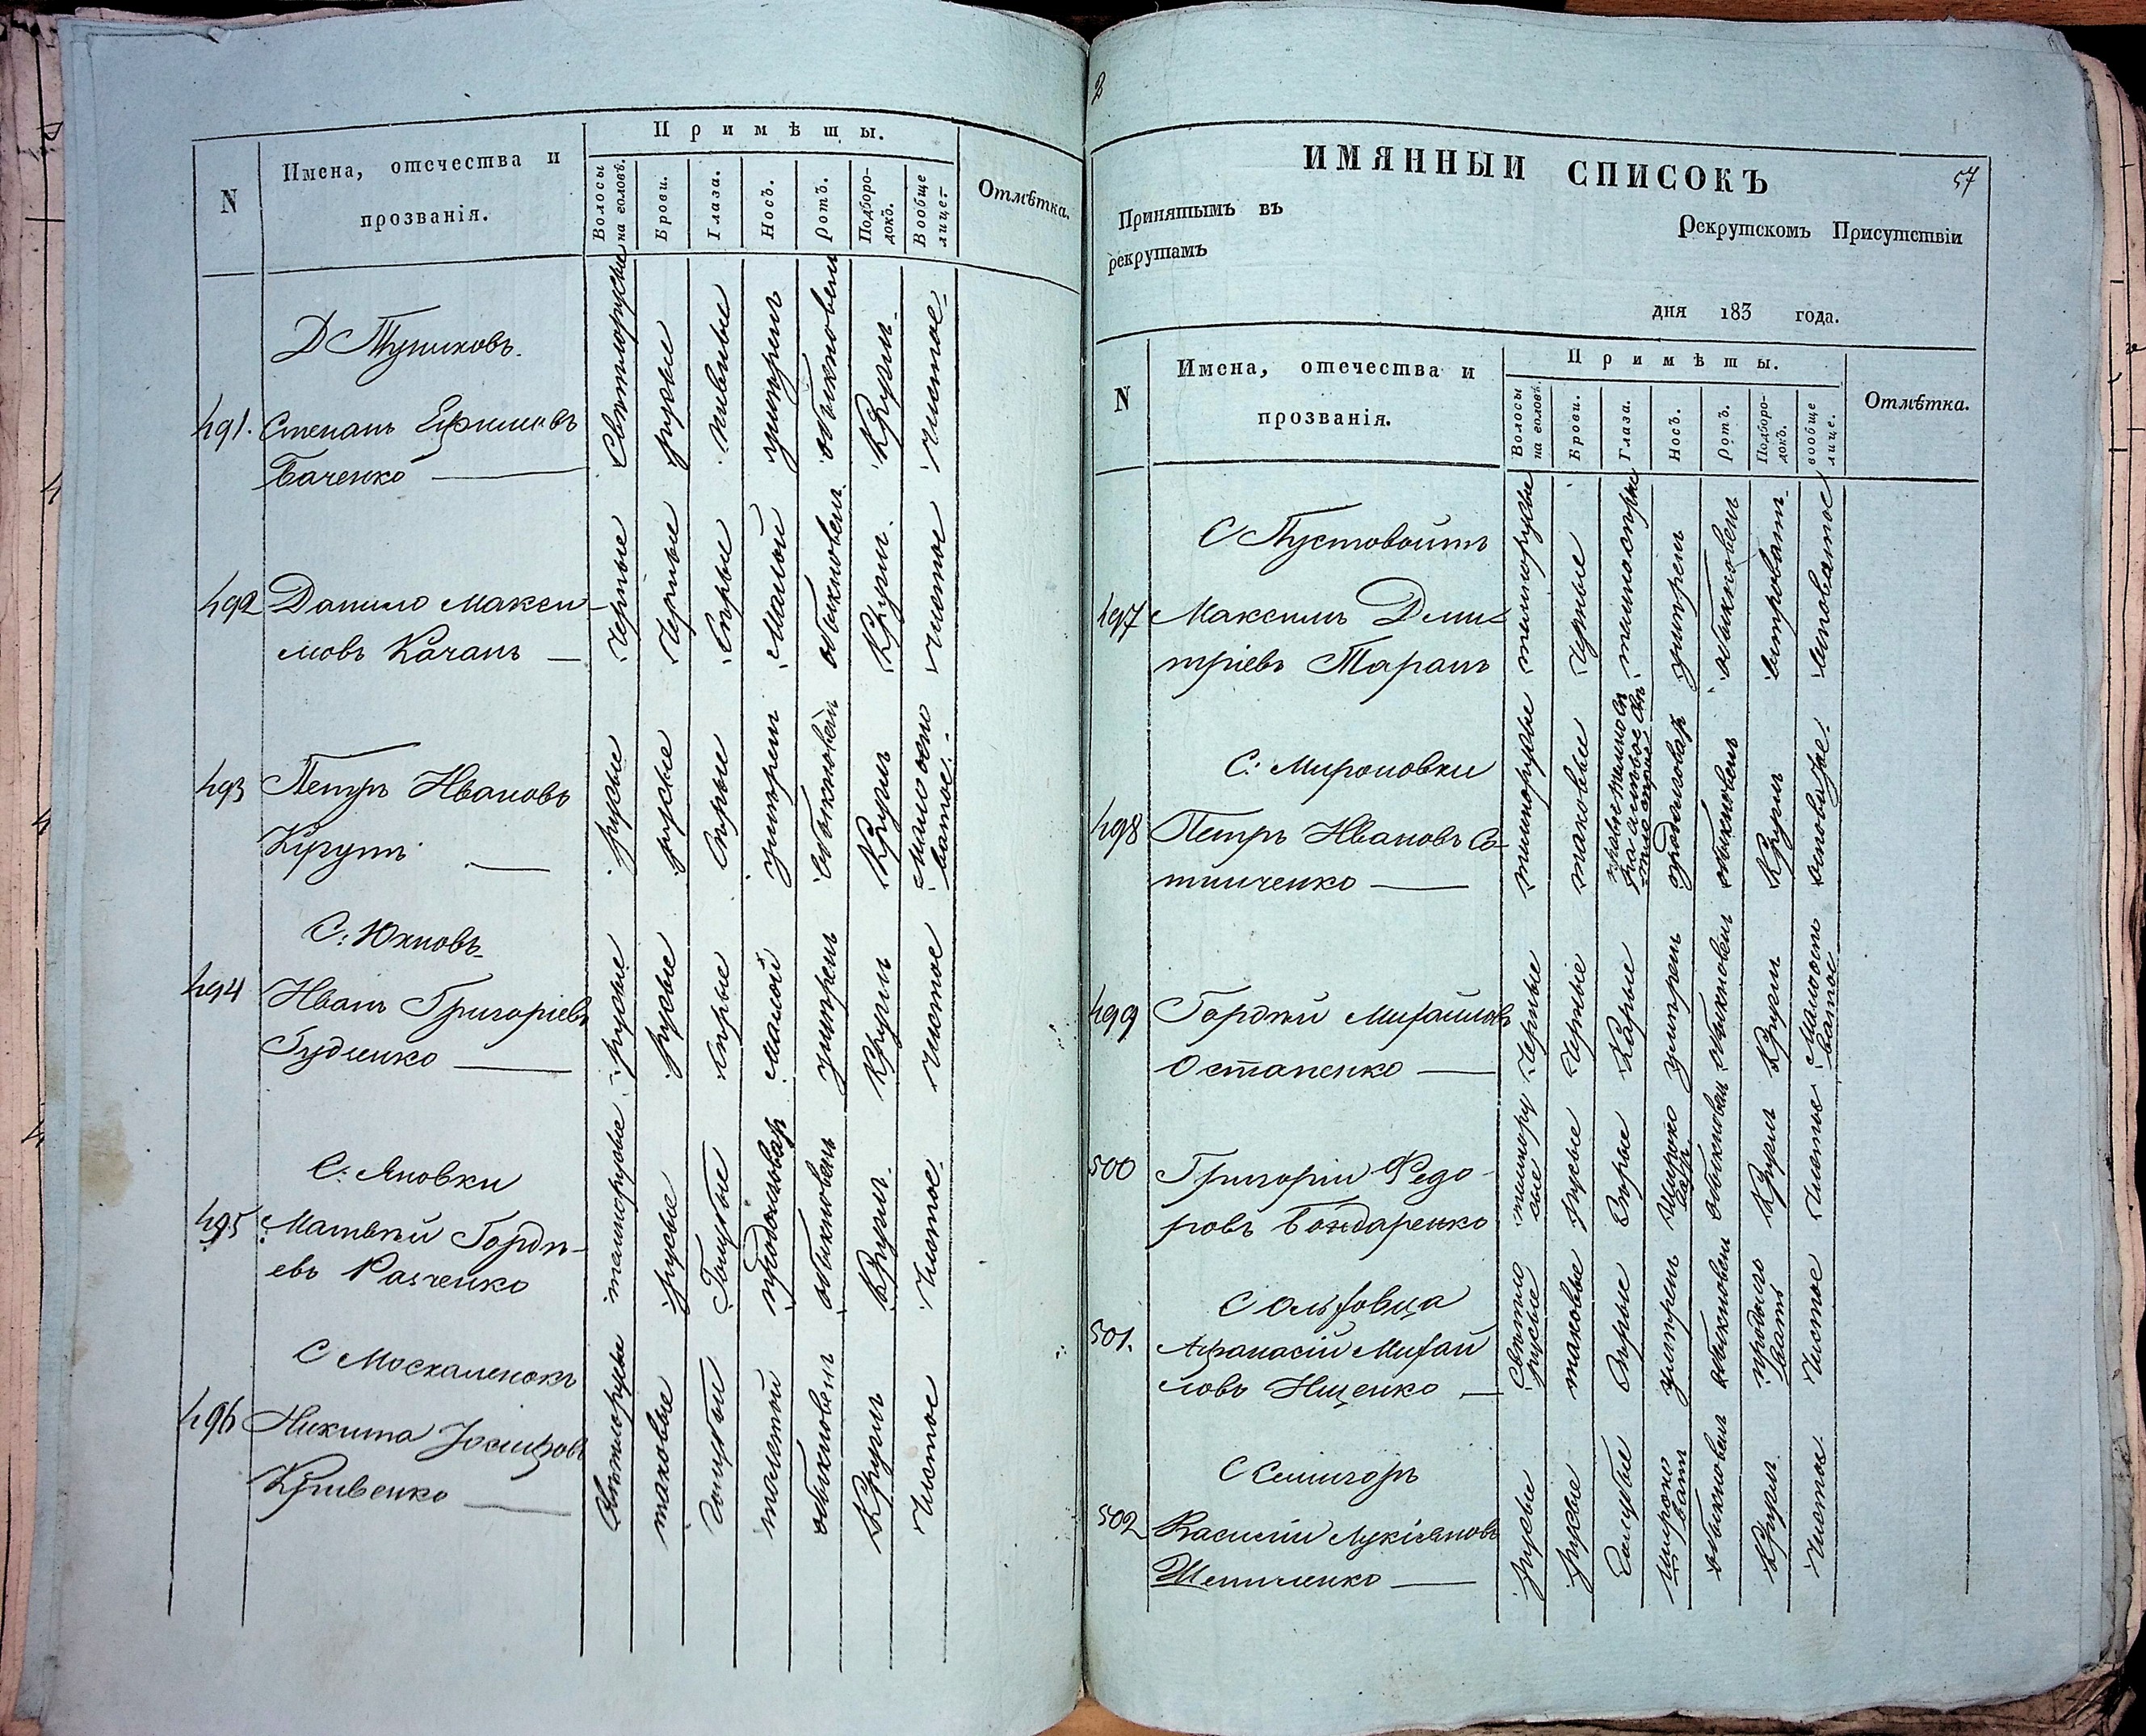 N
Имена, отечества и
прозванія.
Примѣты.
Волосы на головѣ.
Брови.
Глаза.
Носъ.
Ротъ.
Подбородокъ.
Вообще лице.
Отмѣтка.
491. Степанъ Ефимовъ
Баченко
Свѣтлорусые
русые
умѣрен
обыкновен
Кругл.
чистое
492 Данило Макси-
мовъ Качанъ
Черные
Черные
Сѣрые
Малой
обыкновен.
Кругл.
чистое
493 Петръ Ивановъ
русые
русые
Сѣрые
умѣрен
обыкновен
Кругл
Мало оспо
ватое.
С: Юхновъ
494 Иванъ Григоріевъ
Гудченко
русые
русые
Сѣрые
Малой
умѣрен
Кругл
чистое
С: Яновки
495 Матвѣй Гордѣ-
евъ
темнорусые
русые
Голубые
продолговат
обыкновен
Кругл.
чистое.
С Москаленокъ
496 Никита Іосифовъ
Кривенко
Свѣтлорусые
таковые
обыкновен
Кругл
чистое
ИМЯННЫЙ СПИСОКЪ
57
Принятымъ въ
Рекрутскомъ Присутствіи
рекрутамъ
дня 183 года.
N
Имена, отечества и
прозванія.
Примѣты.
Волосы на головѣ.
Брови.
Глаза.
Носъ.
Ротъ.
Подбородокъ.
вообще лице.
Отмѣтка.
С Пустовойтъ
497 Максимъ Дми-
тріевъ Таранъ
темнорусые
Черные
темносѣрые
умѣрен
обыкновен
С: Мироновки
498 Петръ Ивановъ Со-
темнорусые
таковые
продолговат
обыкновен
Кругл
499 Гордѣй Михайловъ
Остапенко
Черные
Черные
Карые
умѣрен
обыкновен
Кругл
Малооспо
ватое
500 Григорій Федо-
ровъ Бондаренко
темнору
сые
русые
Сѣрые
Широко
ват
обыкновен
Кругл
Чистое
С Ольховца
501. Афанасій Михай
ловъ Ищенко
Свѣтло
русые
таковые
Сѣрые
умѣрен
обыкновен
продолго
ватъ
Чистое
С Селигоръ
502 Василій Лукіяновъ
русые
русые
Голубые
Широко
ватъ
обыкновен
Кругл.
Чистое.